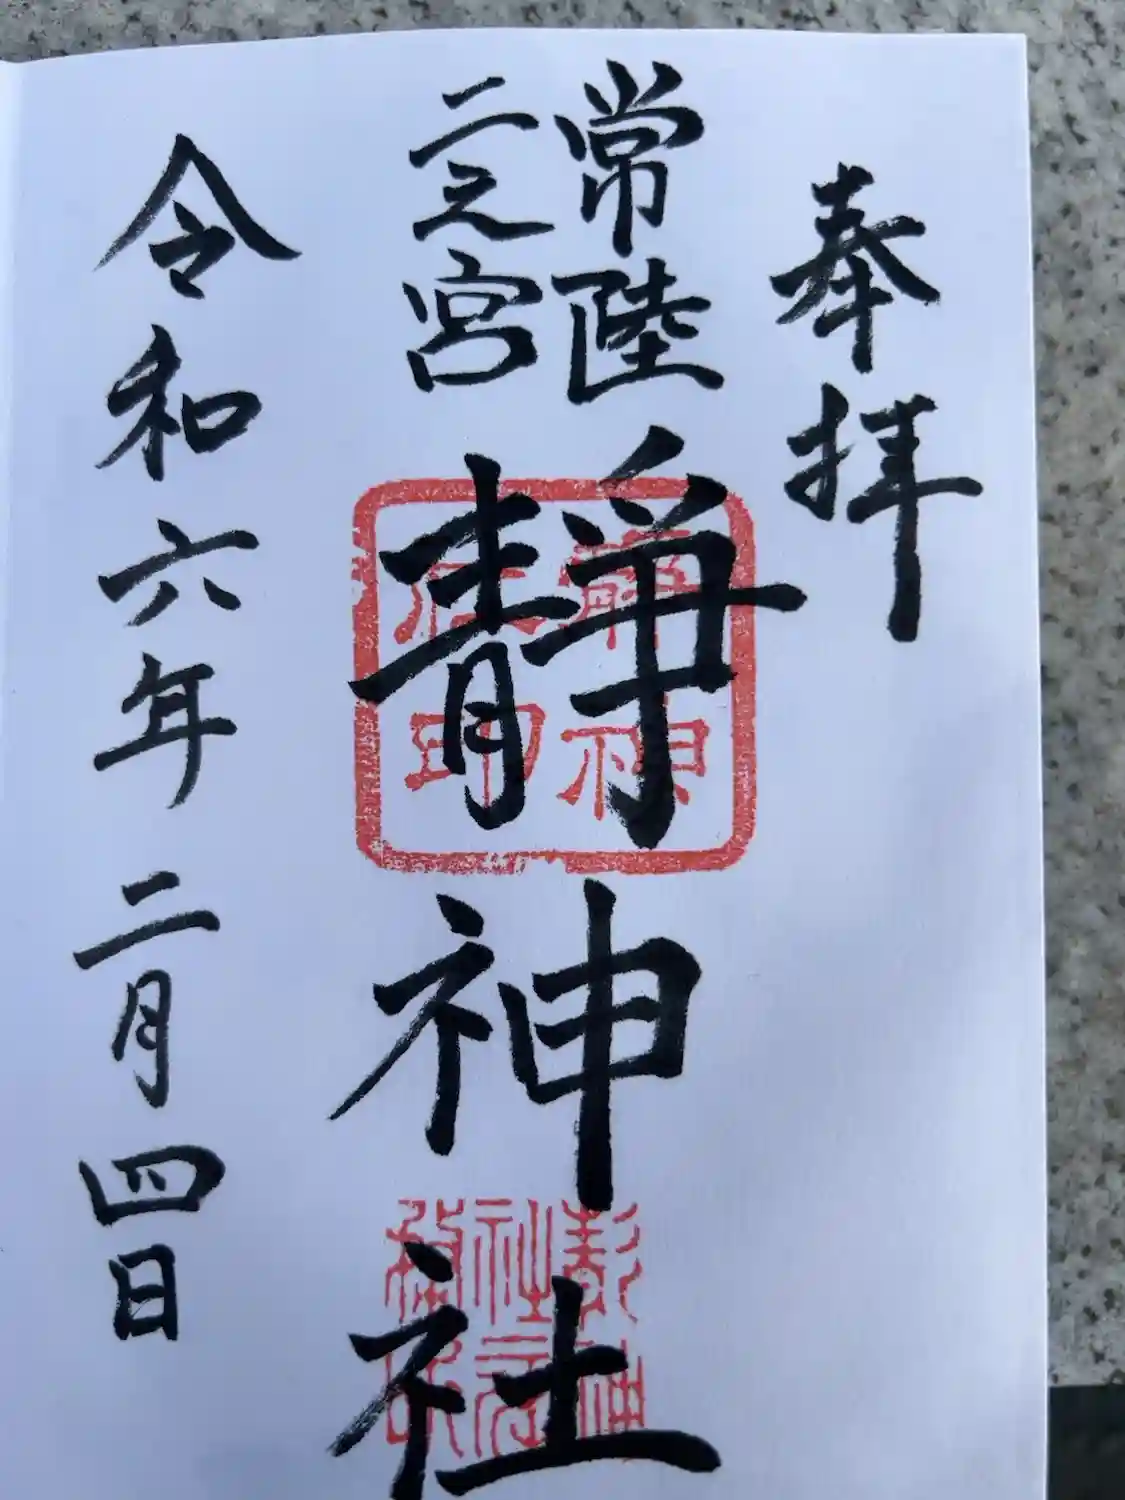 奉拝
常陸
二之宮
静神社
静神
社印
令和六年二月四日